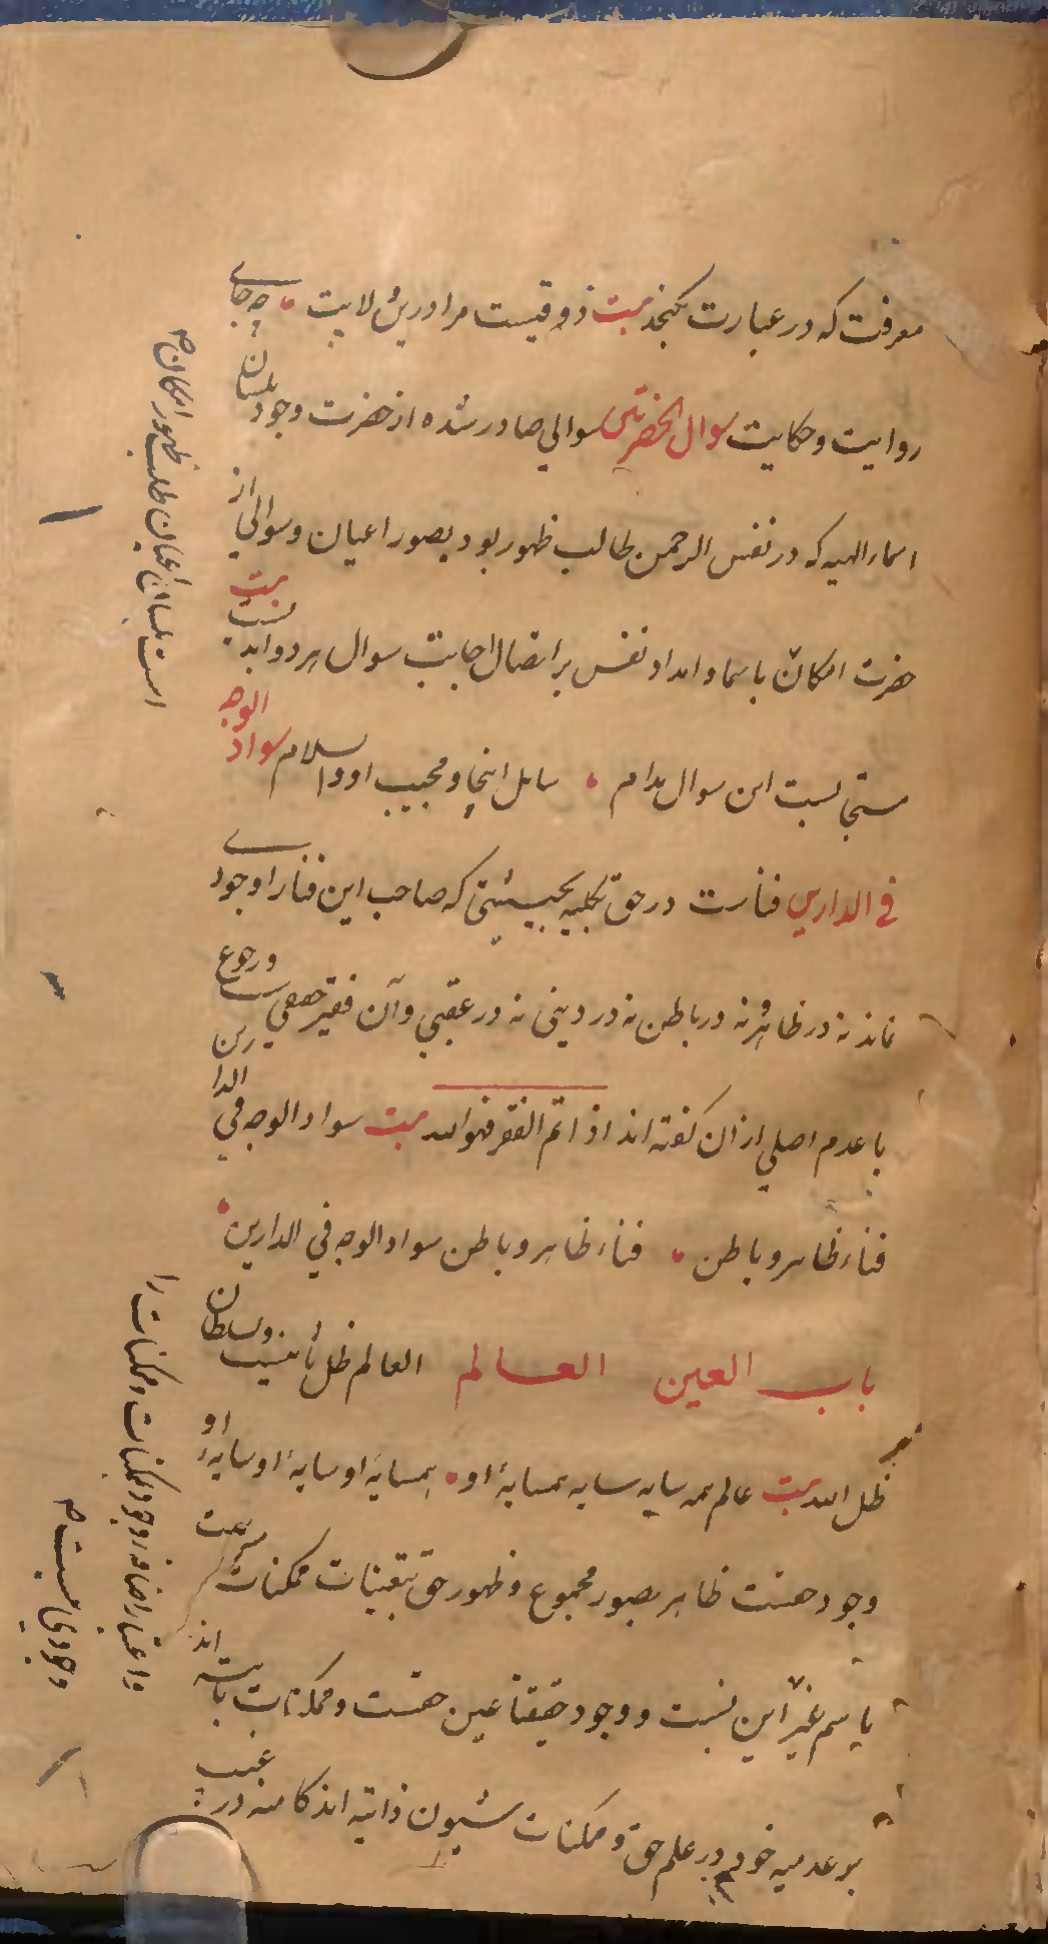 معرفت که در عبارت نکنجد بیت ذوقیست مرا درین ولایت چه جای
روایت و حکایت سوال الحضرتین سوالی صادر شده از حضرت وجود بلسان
اسماء الهیه که در نفس الرحمن طالب ظهور بود بصور اعیان و سوالی از
حضرت امکان باسما و امداد نفس بر اتصال اجابت سوال هر دو ابد است بیت
مستجابست این سوال مدام سایل اینجا و مجیب او والسلام سواد الوجه
فی الدارین فنا است در حق بکلیه بحیثیتی که صاحب این فنا را وجودی
نماند نه در ظاهر و نه در باطن نه در دینی نه در عقبی و آن فقر حقیقی است و رجوع
با عدم اصلی از ان کفته اند اذا تم الفقر فهو الله بیت سواد الوجه فی الدارین
فناء ظاهر و باطن فناء ظاهر و باطن سواد الوجه فی الدارین
باب العین العالم العالم ظل ثانیست و سلطان
ظل الله بیت عالم همه سایه سایه همسایهٔ او همسایهٔ او سایهٔ او سایهٔ او
وجود حقست ظاهر بصور مجموع و ظهور حق بتعینات ممکنات
باسم غیر این نسبت و وجود حقیقتا عین حقست و ممکنات ثابته اند
بر عدمیه خود در علم حق و ممکنات شیون ذاتیه اند کامنه در غیب
است بلسان اعیان طلب ظهور امکان
و اعتبار اضافه وجود بممکنات و ممکنات را
وجودی نیست